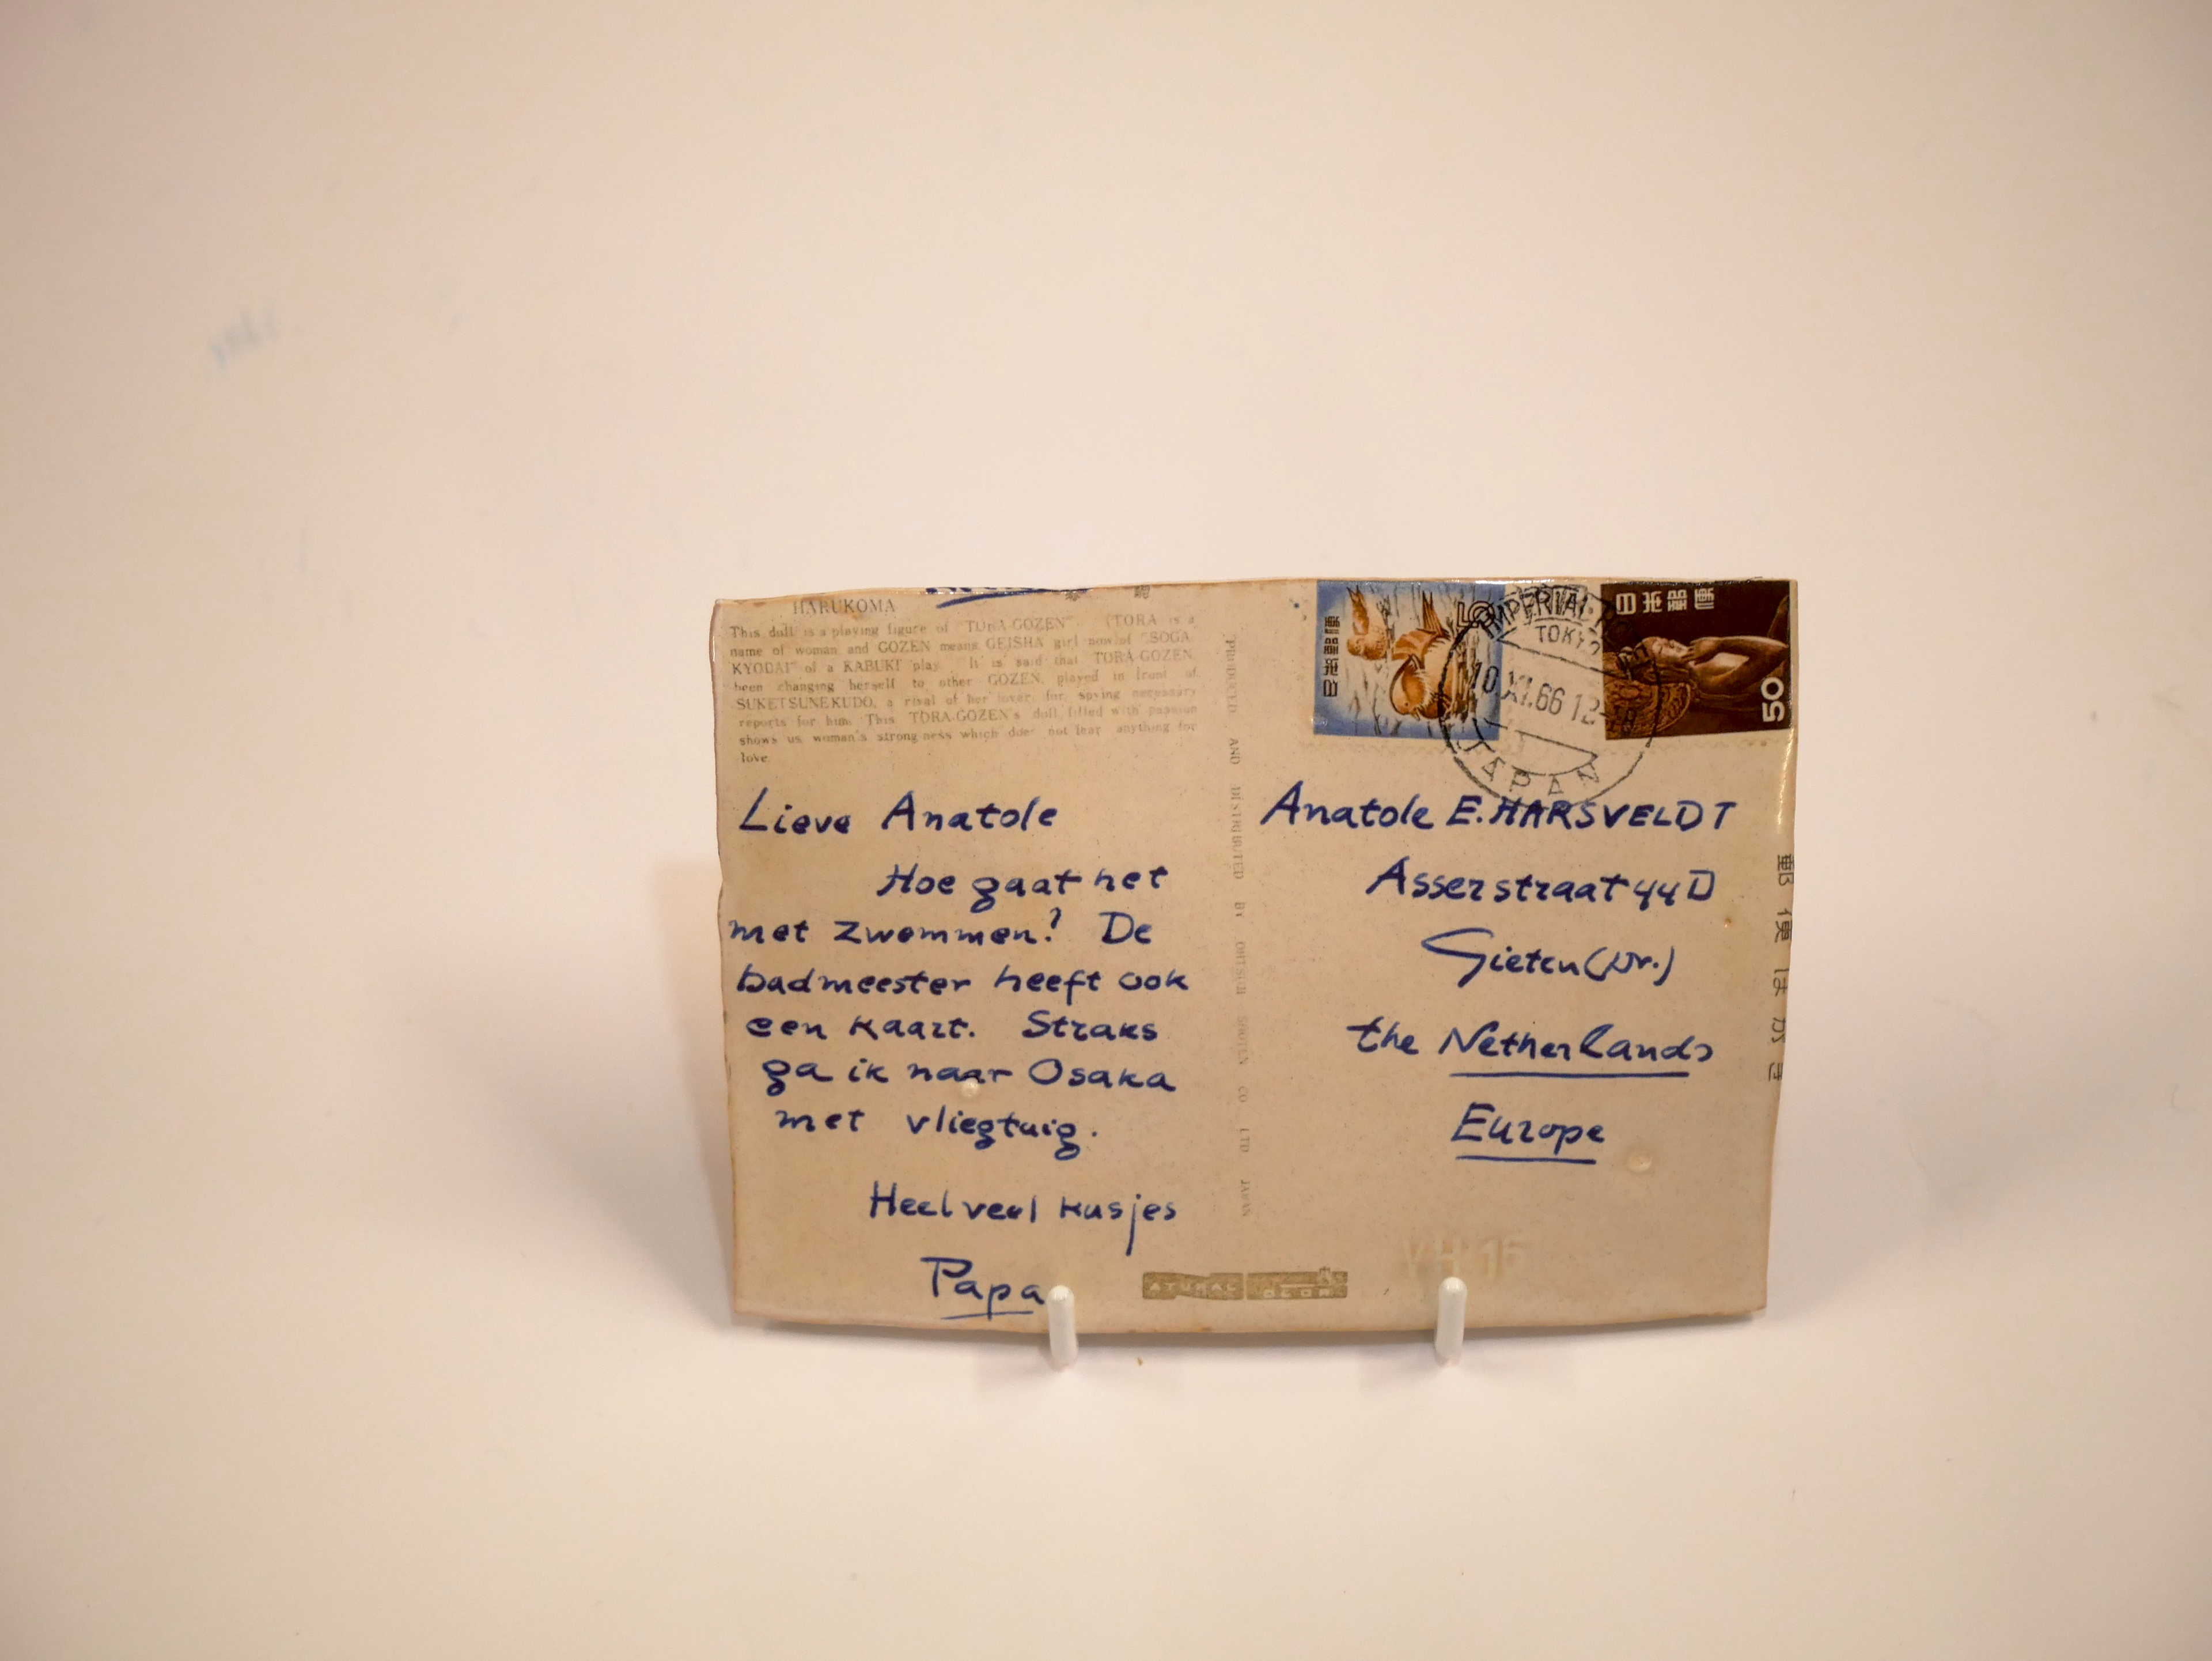 HARUKOMA
This doll is a playing figure of "TORA-GOZEN". (TORA is a
name of woman and GOZEN means GEISHA girl now) of "SOGA
KYODAI" of a KABUKI play. It is said that TORA-GOZEN,
been changing herself to other GOZEN, played in front of
SUKETSUNE KUDO, a rival of her lover, for spying necessary
reports for him. This TORA-GOZEN's doll filled with passion
shows us woman's strong ness which does not fear anything for
love.
Lieve Anatole
Hoe gaat het
met zwemmen? De
badmeester heeft ook
een kaart. Straks
ga ik naar Osaka
met vliegtuig.
Heel veel kusjes
Papa
PRODUCED AND DISTRIBUTED BY OHTSUJI SHOTEN CO. LTD JAPAN
日本郵便
5
日本郵便
50
IMPERIAL
TOKYO
10.XI.66 12-18
JAPAN
Anatole E. HARSVELDT
Asserstraat 44D
Gieten (Dr.)
the Netherlands
Europe
郵便はがき
VH 16
ATURAL